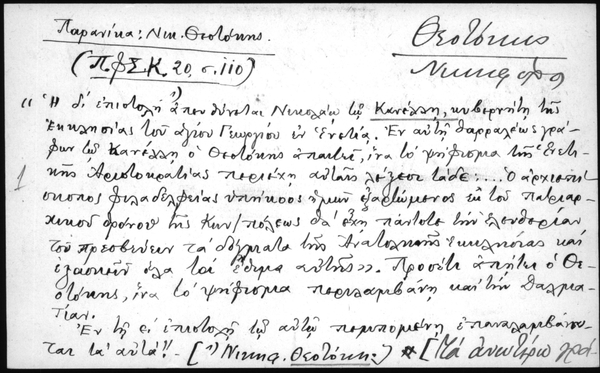 Παρανίκα: Νικ. Θεοτόκης.
Θεοτόκης
Νικηφόρο
(Π.Φ.Σ.Κ. 20, σ. 110)
"Ἡ δ' ἐπιστολὴ 1) ἀπευθύνεται Νικολάῳ τῷ Κανέλλη, κυβερνήτῃ τῆς
Ἐκκλησίας τοῦ ἁγίου Γεωργίου ἐν Ἑνετίᾳ. Ἐν αὐτῇ θαρραλέως γρά-
φων τῷ Κανέλλῃ ὁ Θεοτόκης ἀπαιτεῖ, ἵνα τὸ ψήφισμα τῆς Ἑνετι-
κῆς Ἀριστοκρατίας περιέχῃ αὐταῖς λέξεσι τάδε: ... Ὁ ἀρχιεπί-
1 σκοπος Φιλαδελφείας ὑπήκοος ἡμῶν ἐξαρτώμενος ἐκ τοῦ πατριαρ-
χικοῦ θρόνου τῆς Κων/πόλεως θὰ ἔχῃ πάντοτε τὴν ἐλευθερίαν
τοῦ πρεσβεύειν τὰ δόγματα τῆς Ἀνατολικῆς Ἐκκλησίας καὶ
ἐξασκεῖν ὅλα τὰ ἔθιμα αὐτῆς». Προσέτι ἀπῄτει ὁ Θε-
οτόκης, ἵνα τὸ ψήφισμα περιλαμβάνῃ καὶ τὴν Δαλμα-
τίαν.
Ἐν τῇ ε΄ ἐπιστολῇ τῷ αὐτῷ πεμπομένῃ ἐπαναλαμβάνον-
ται τὰ αὐτά"- [1) Νικηφ. Θεοτόκη:) * [Τὰ ἀνωτέρω γρά-